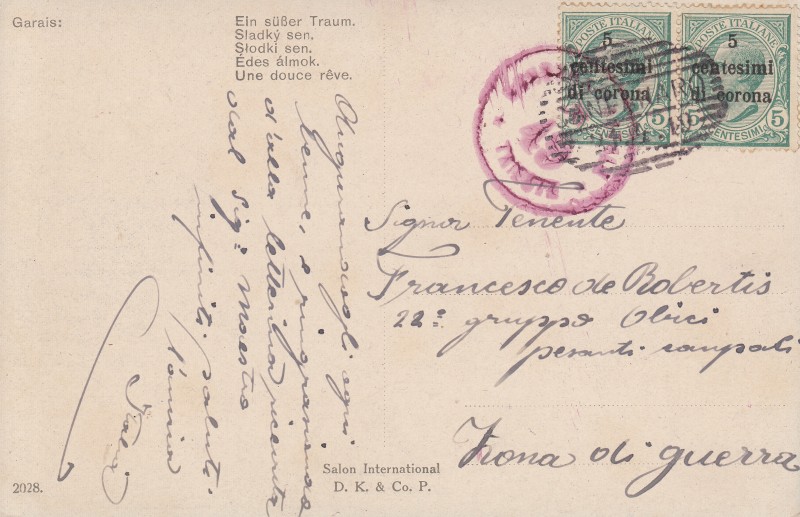 Garais:
Ein süßer Traum.
Sladký sen.
Słodki sen.
Édes álmok.
Une douce rêve.
POSTE ITALIANE
5
centesimi
di corona
5 CENTESIMI 5
POSTE ITALIANE
5
centesimi
di corona
5 CENTESIMI 5
Augurandogli ogni
bene, e ringraziando
d'alla letterina ricevuta
dal Sig: Maestro
infiniti saluti.
l'amica
Signor Tenente
Francesco de Robertis
22º gruppo Obici
pesanti campali
Zona di guerra
Salon International
D. K. & Co. P.
2028.